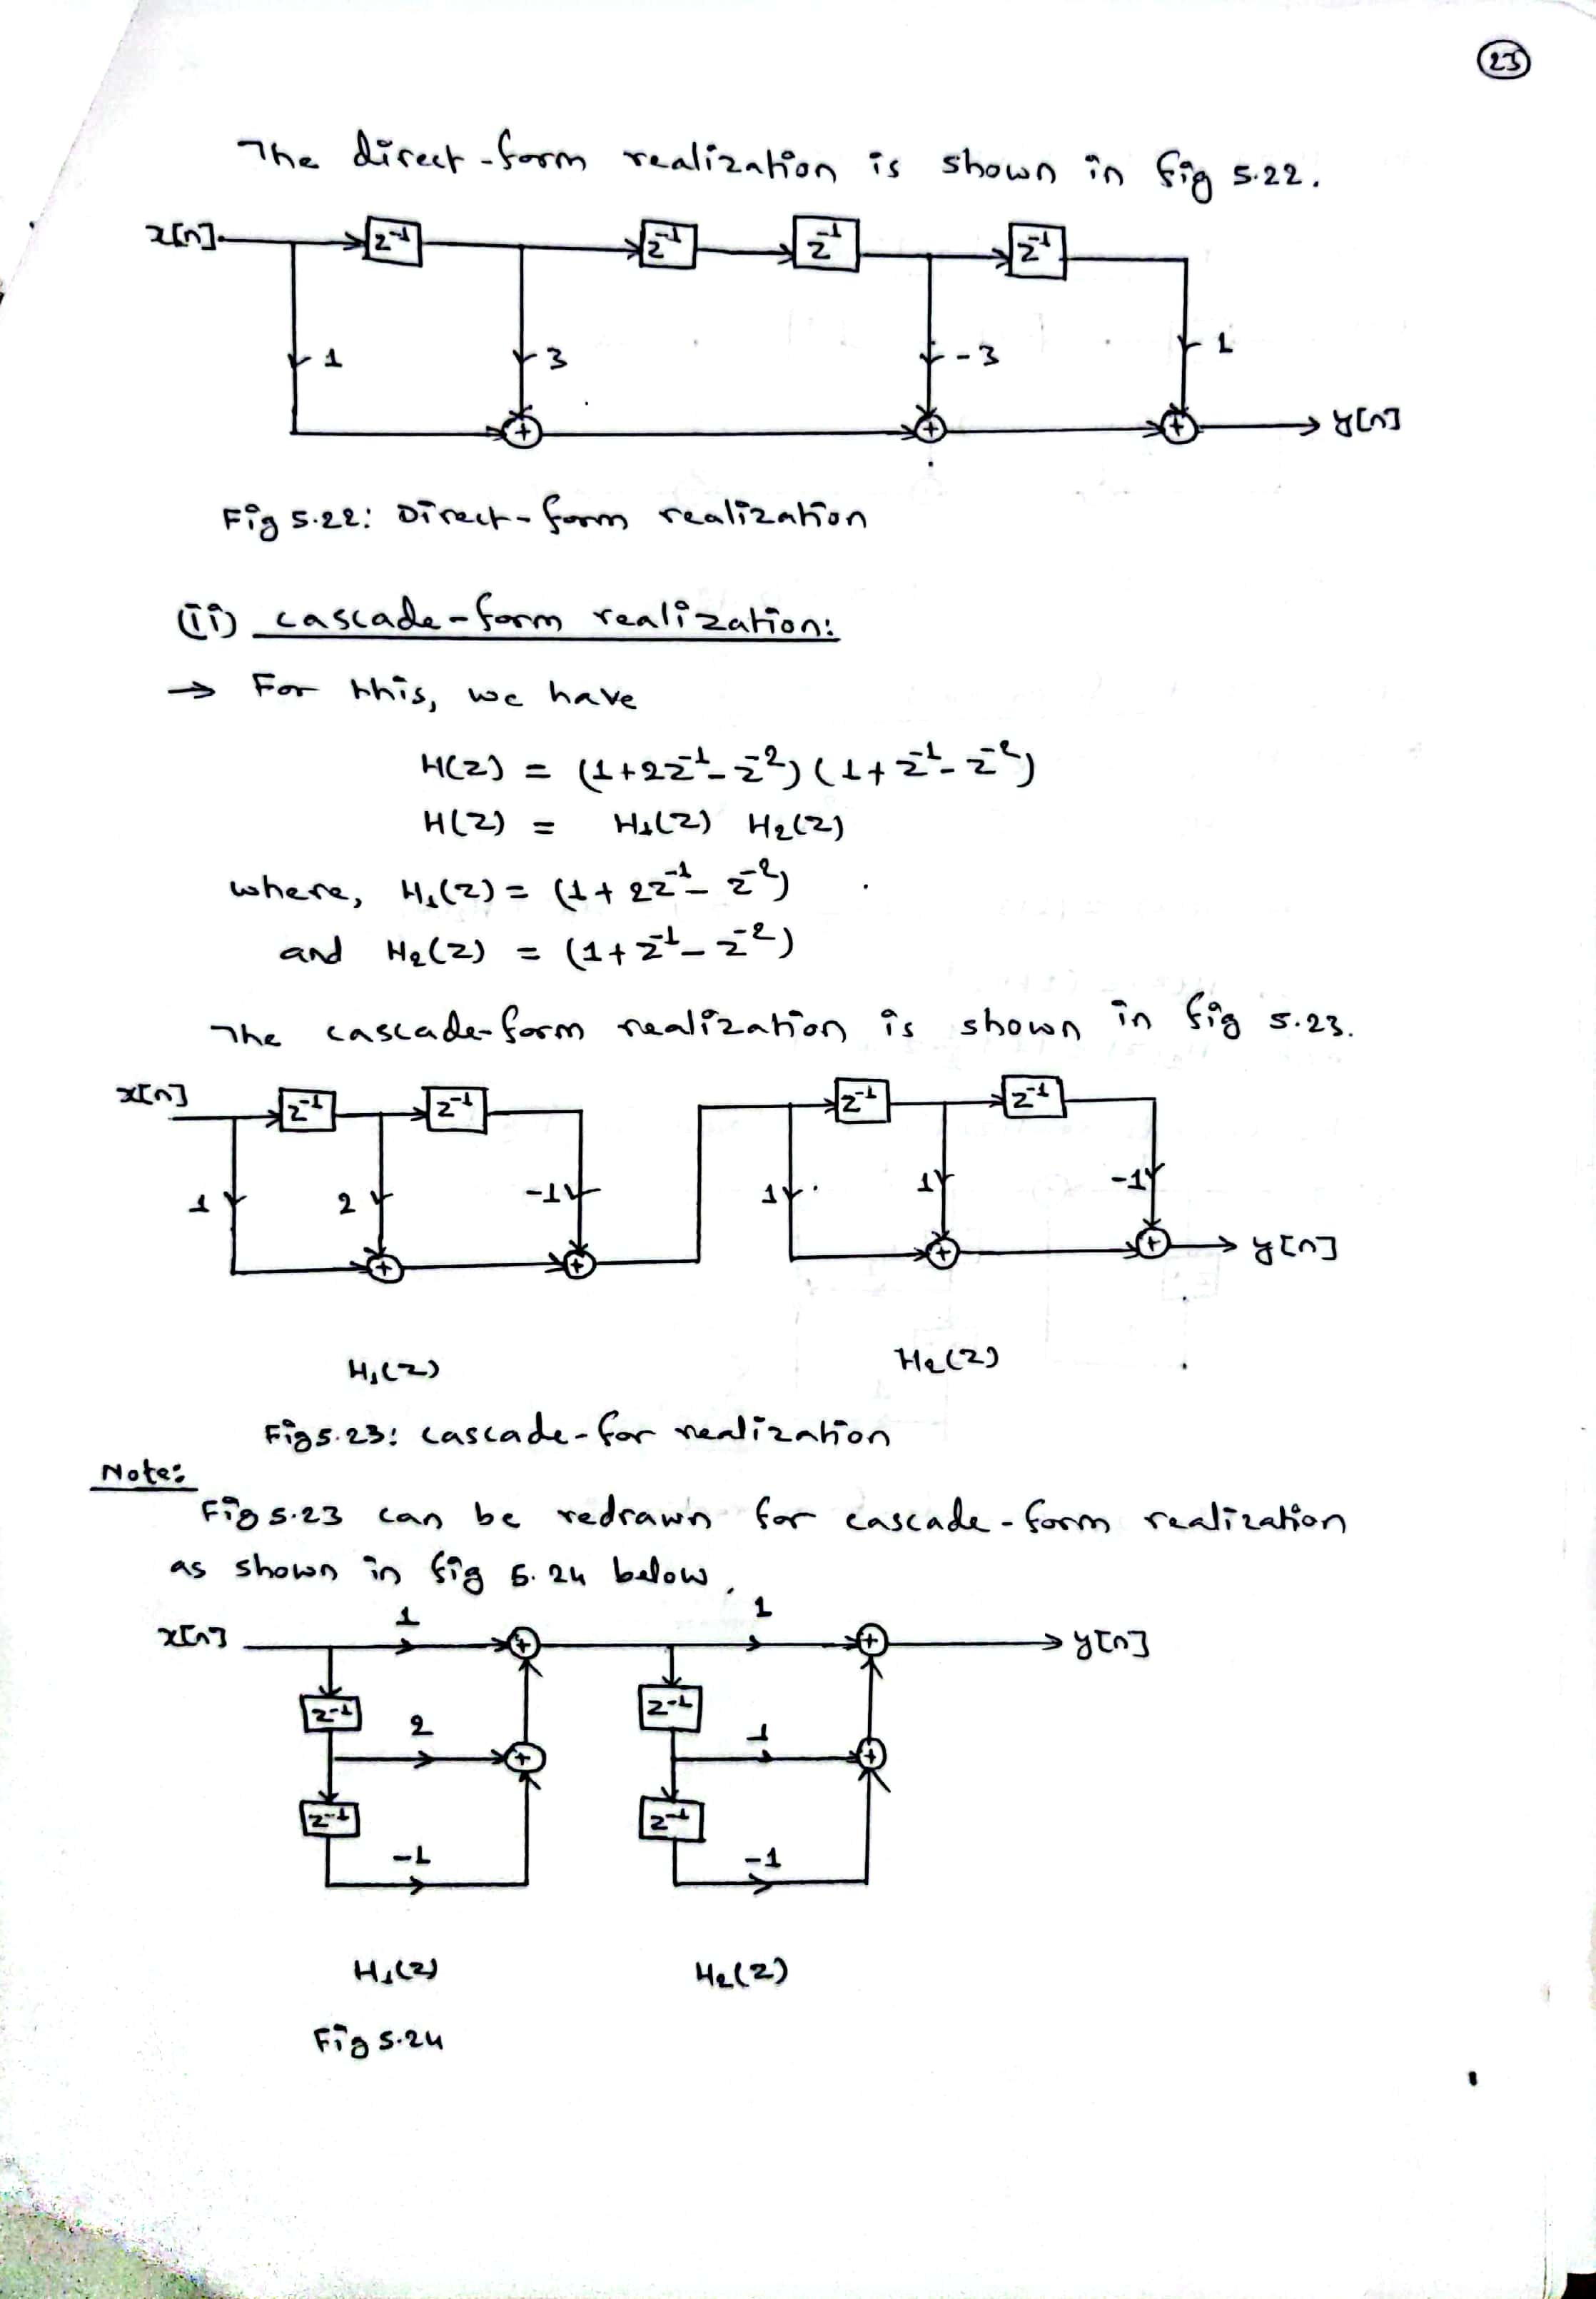 23
The direct-form realization is shown in fig 5.22.
x[n] z⁻¹ z⁻¹ z⁻¹ z⁻¹
1 3 -3 1
+ + + y[n]
Fig 5.22: Direct-form realization
(ii) cascade-form realization:
→ For this, we have
H(z) = (1+2z⁻¹-z⁻²)(1+z⁻¹-z⁻²)
H(z) = H₁(z) H₂(z)
where, H₁(z) = (1+2z⁻¹-z⁻²)
and H₂(z) = (1+z⁻¹-z⁻²)
The cascade-form realization is shown in fig 5.23.
x[n] z⁻¹ z⁻¹ z⁻¹ z⁻¹
1 2 -1 1 1 -1
+ + + + y[n]
H₁(z) H₂(z)
Fig 5.23: cascade-for realization
Note:
Fig 5.23 can be redrawn for cascade-form realization
as shown in fig 5.24 below.
x[n] 1 + 1 + y[n]
z⁻¹ z⁻¹
2 + 1 +
z⁻¹ z⁻¹
-1 -1
H₁(z) H₂(z)
Fig 5.24